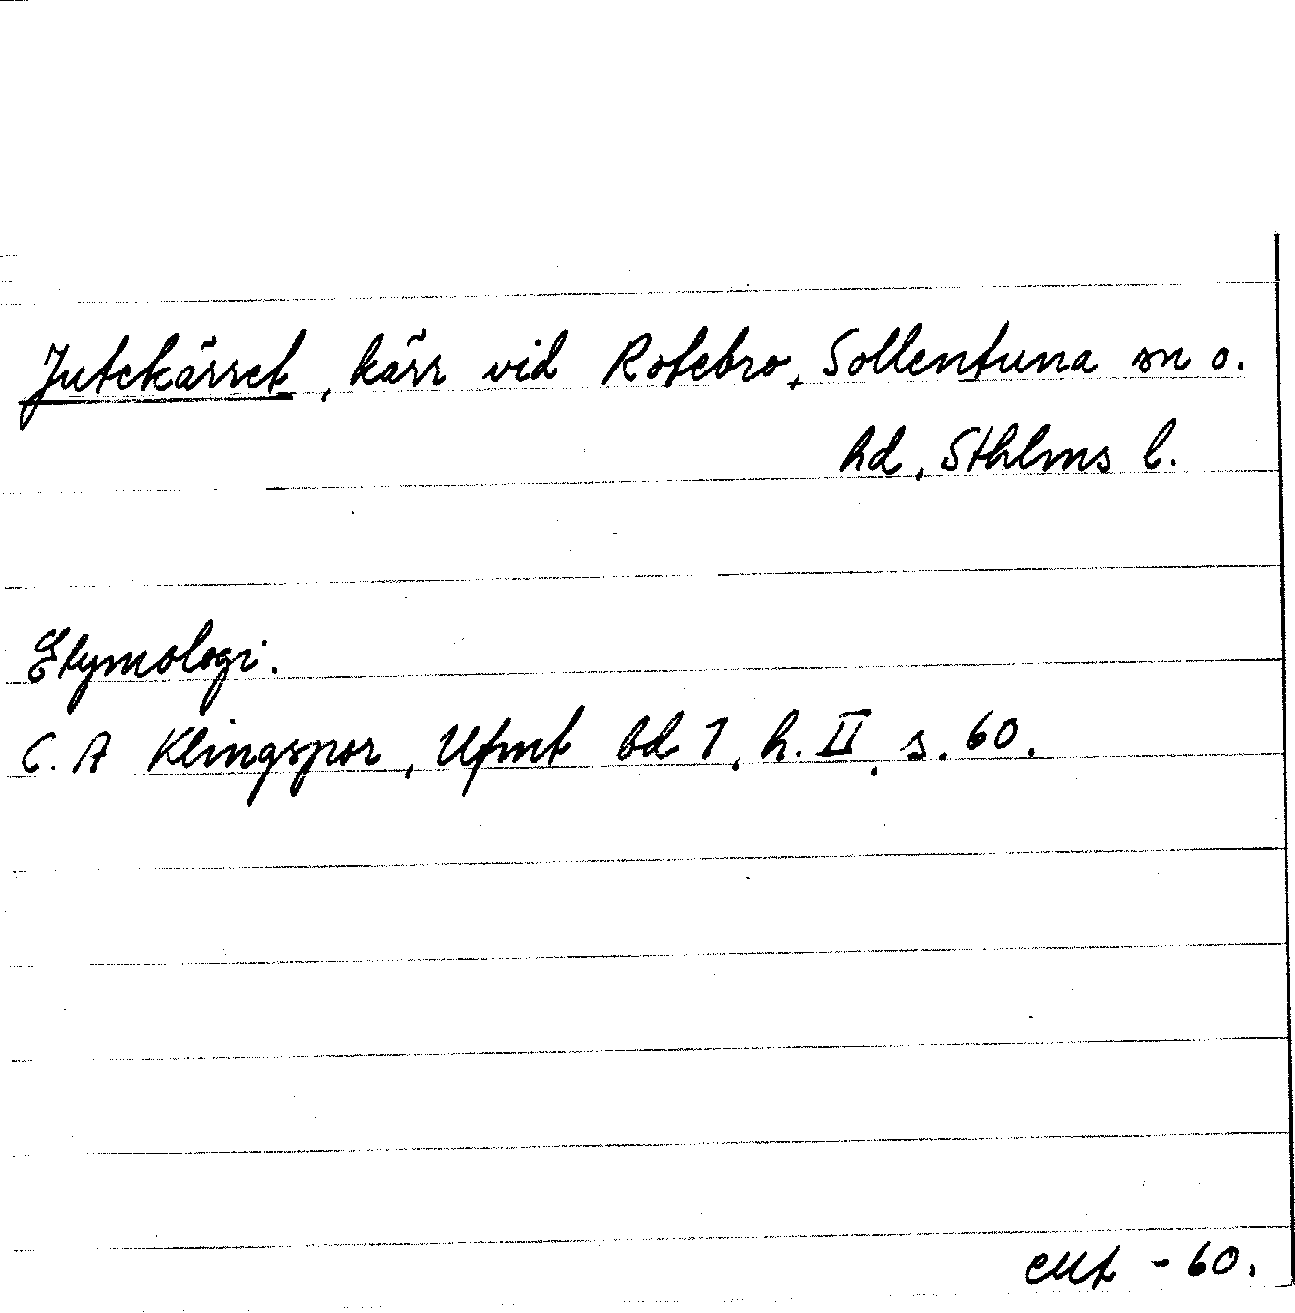 Jutekärret, kärr vid Rotebro, Sollentuna sn o.
hd, Sthlms l.
Etymologi.
C. A Klingspor, Ufmt bd 1, h. II, s. 60.
- 60.